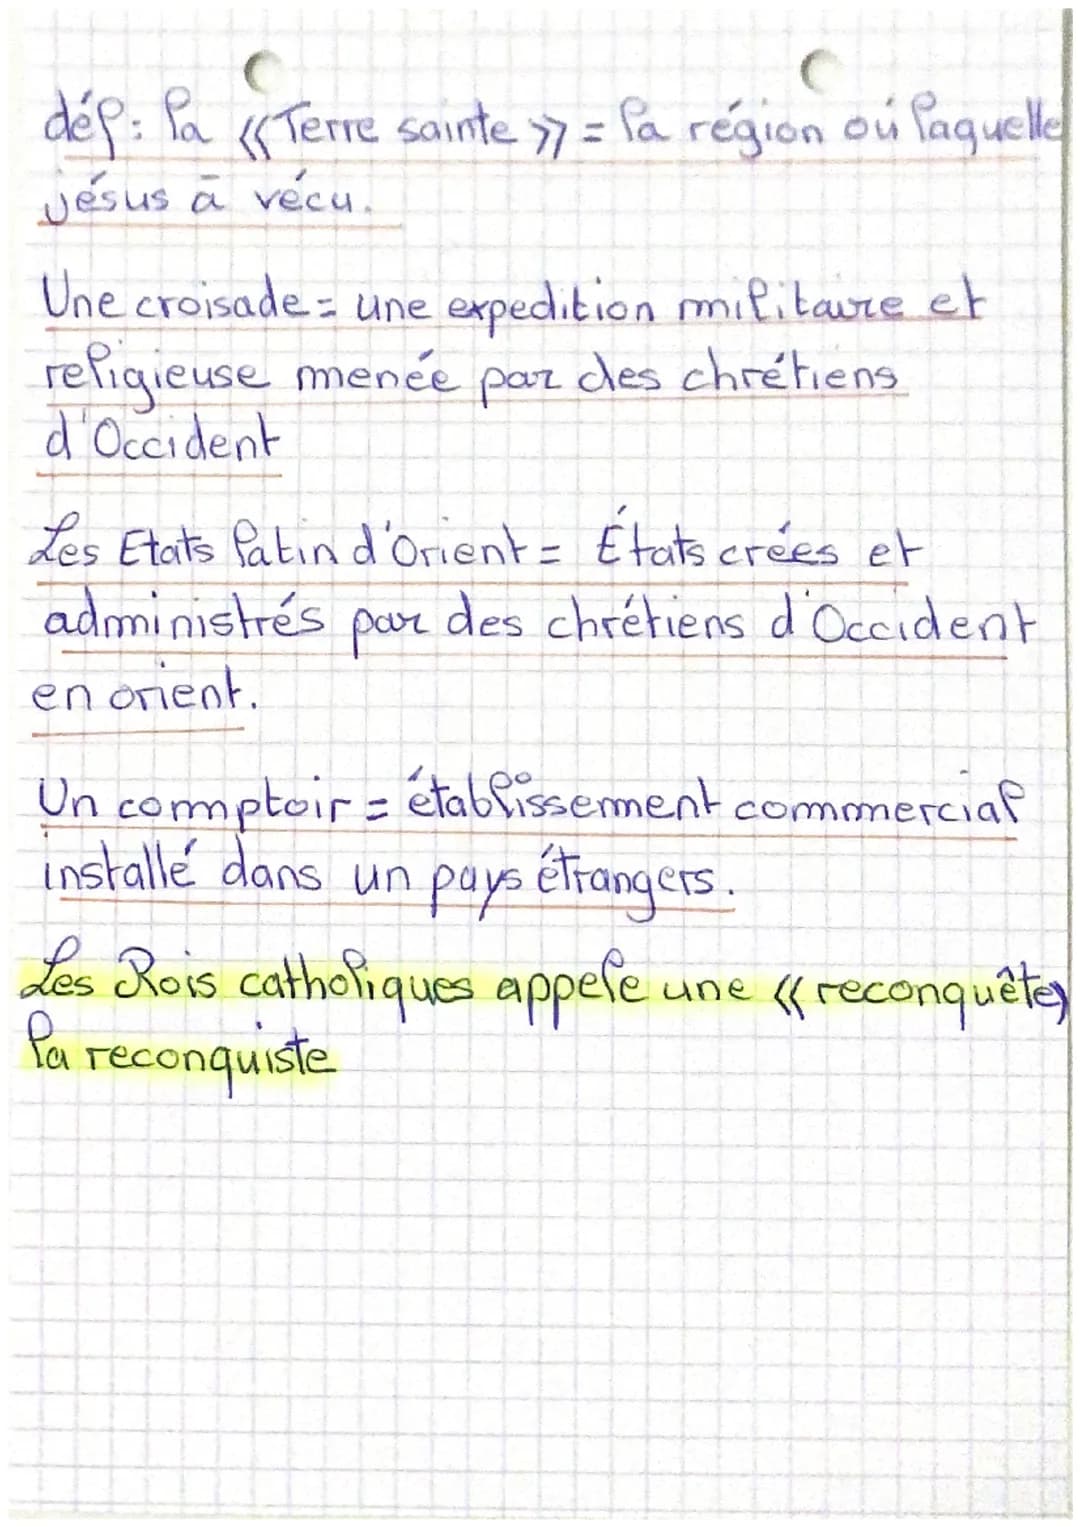 déf: la «Terre sainte» = la région où laquelle
jésus à vécu.
Une croisade = une expedition militaire et
religieuse menée par des chrétiens
d'Occident
Les Etats latin d'Orient = États crées et
administrés par des chrétiens d'Occident
en orient.
Un comptoir = établissement commercial
installé dans un pays étrangers.
Les Rois catholiques appele une «reconquête»
la reconquiste